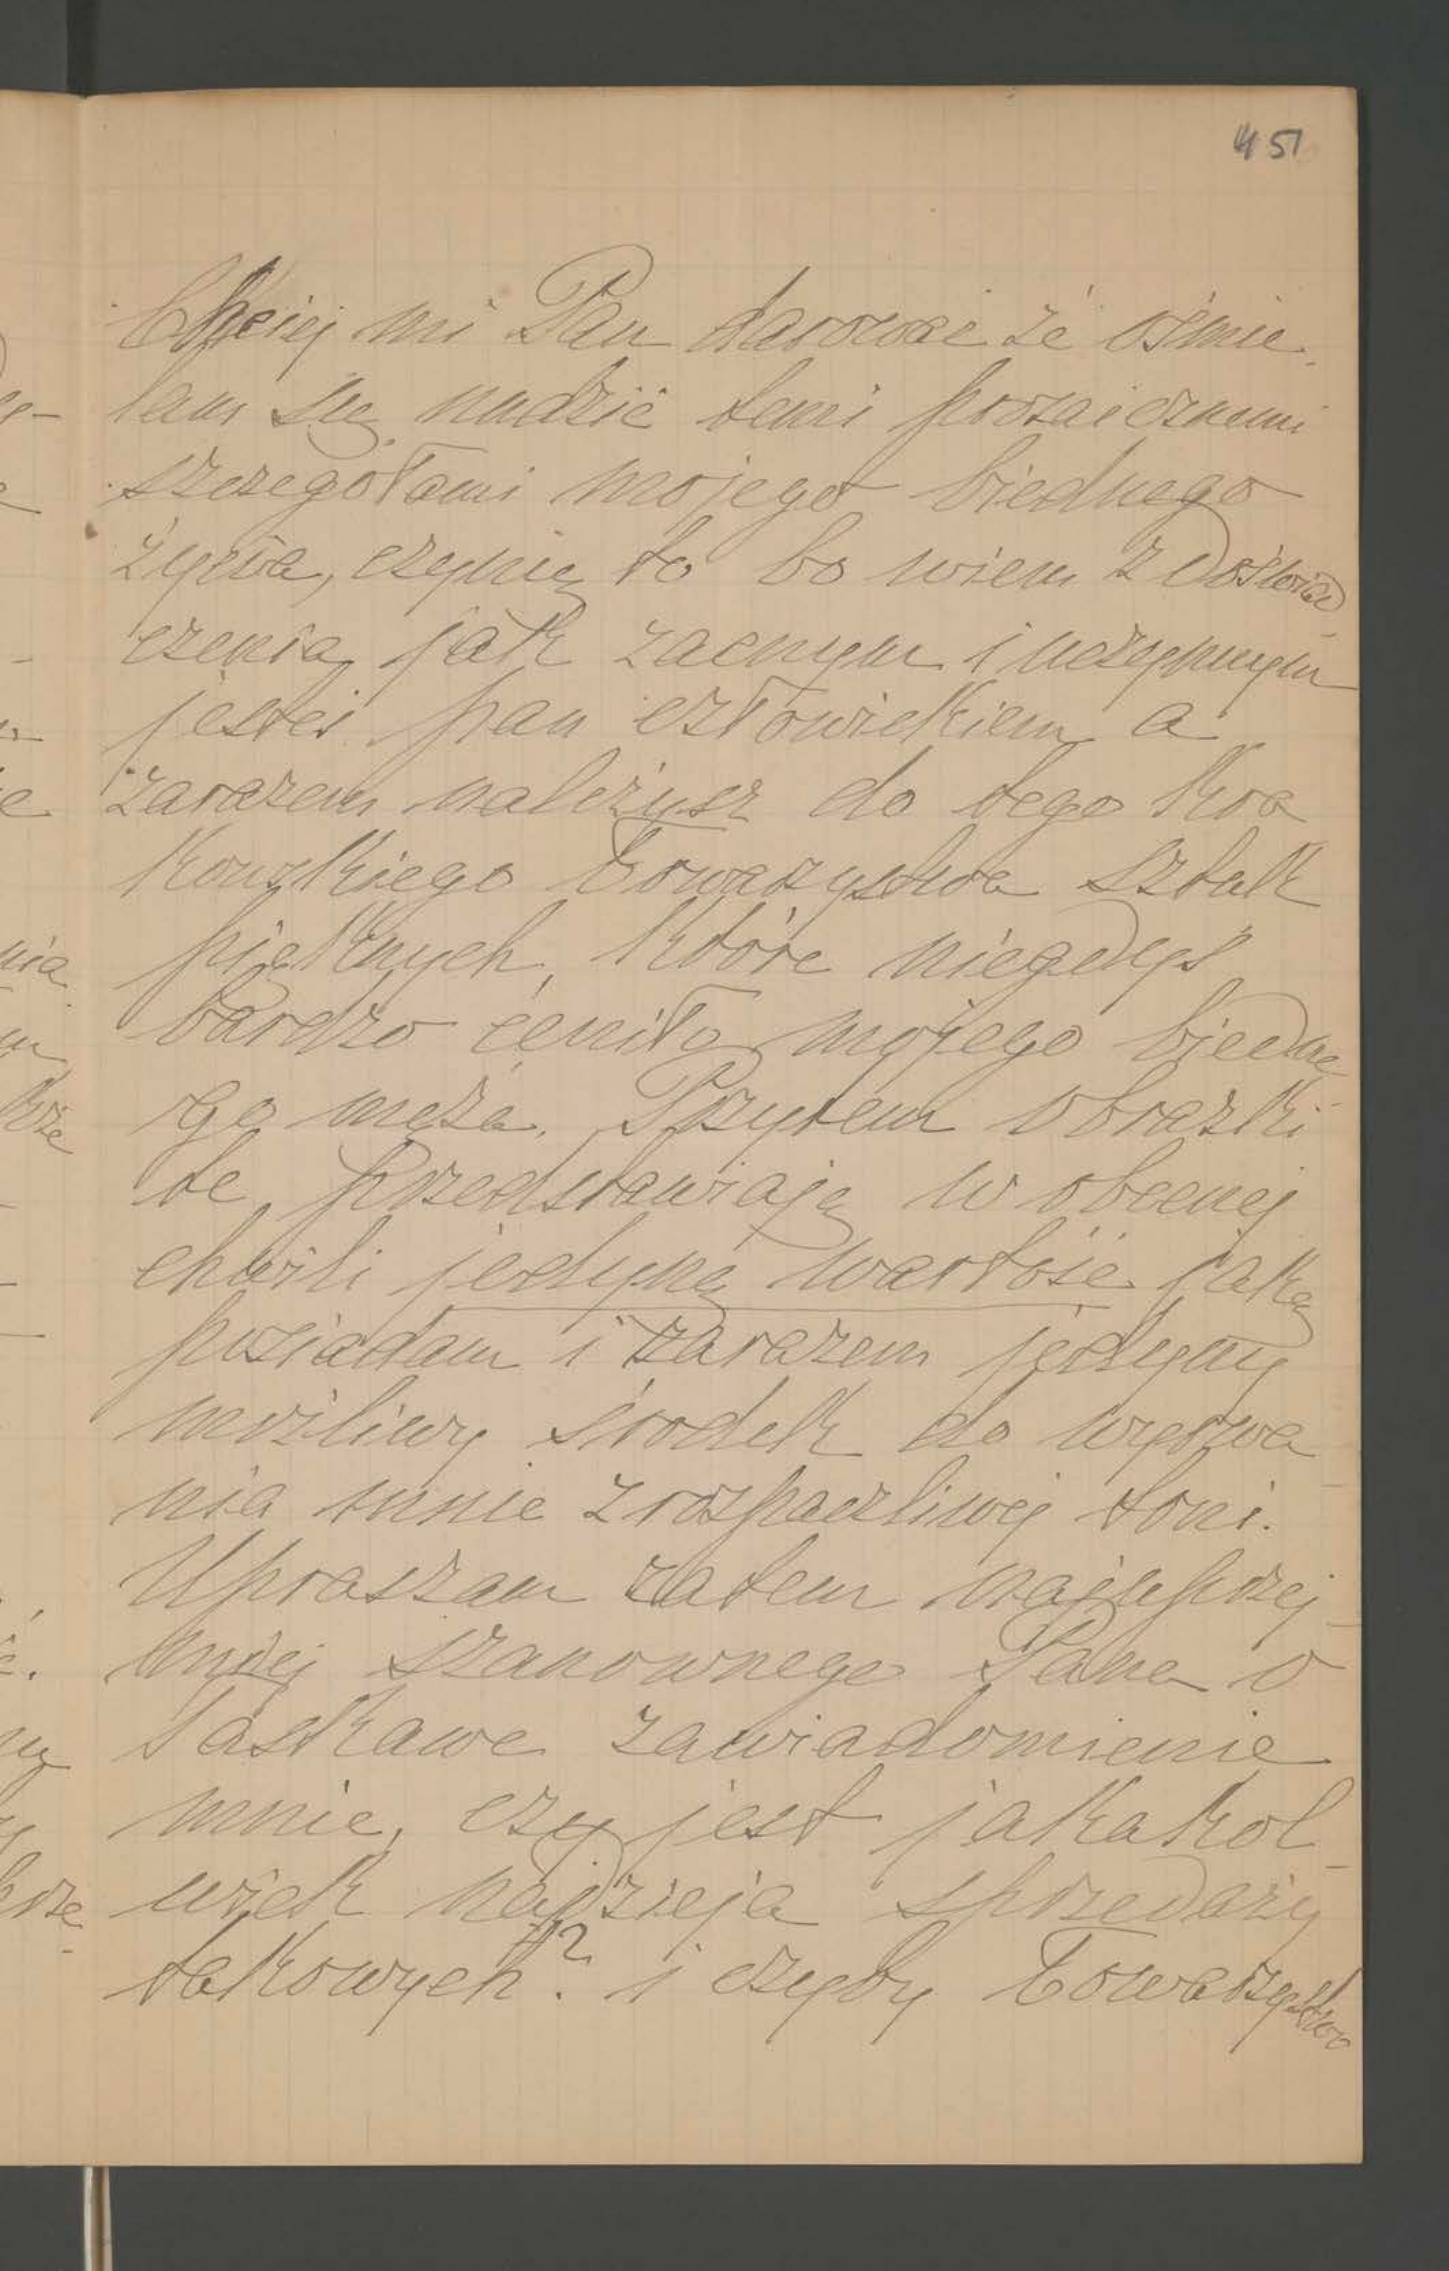 451
Chciej mi Pan darować że ośmie
lam się nudzić temi prozaicznemi
szczegółami mojego biednego
życia, czynię to bo wiem z doświad
czenia, jak zacnym i uczynnym
jesteś pan człowiekiem a
zarazem należysz do tego kra
kowskiego towarzystwa sztuk
pięknych, które niegdyś
bardzo ceniło mojego biedne
go męża. Przytem obrazki
te przedstawiają w obecnej
chwili jedyną wartość jaką
posiadam i zarazem jedyny
możliwy środek do wyrwa
nia mnie z rozpaczliwej toni.
Upraszam zatem najuprzej-
mniej szanownego Pana o
łaskawe zawiadomienie
mnie, czy jest jakakol-
wiek nadzieja sprzedaży
takowych? i czyby towarzystwo